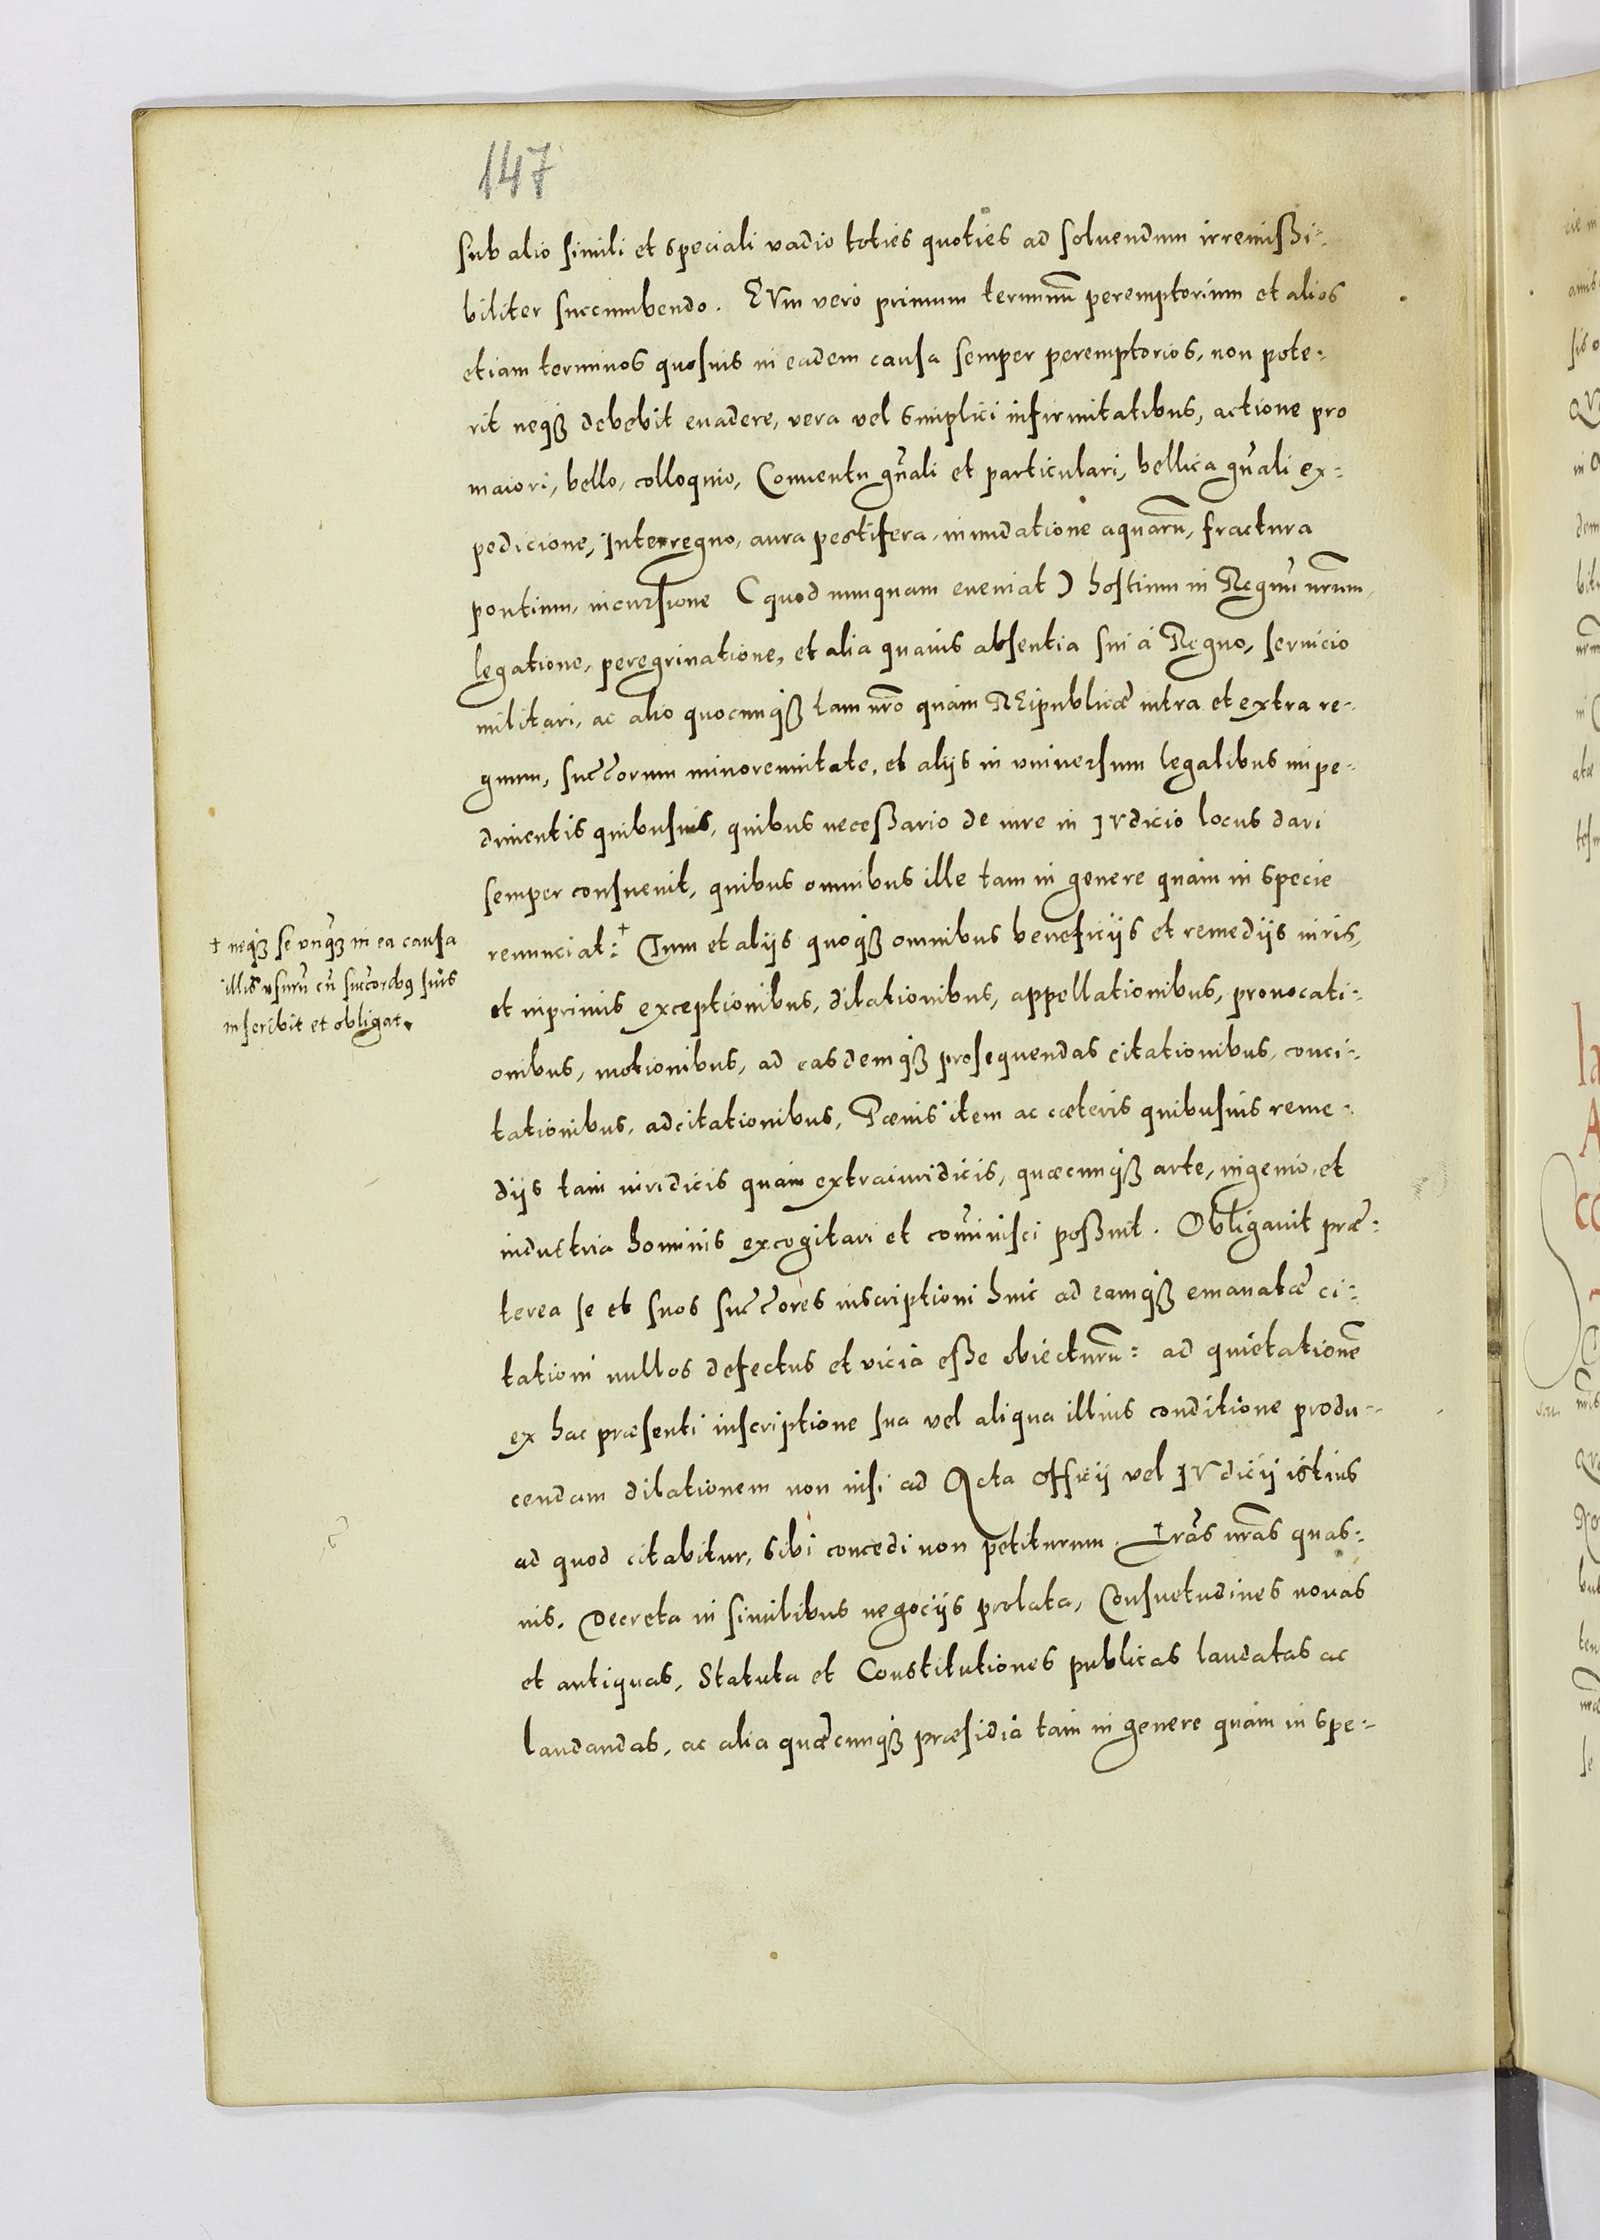 147
sub alio simili et speciali vadio toties quoties ad soluendum irremissi-
biliter succumbendo. EVm vero primum terminũ peremptorium et alios
etiam terminos quosuis in eadem causa semper peremptorios, non pote-
rit neqꝫ debebit euadere, vera vel simplici infirmitatibus, actione pro
maiori, bello, colloquio, Conuentu gñali et particulari, bellica gñali ex-
pedicione, Interregno, aura pestifera, inundatione aquarũ, fractura
pontium, incursione (quod nunquam eueniat) hostium in Regnũ nrũm,
legatione, peregrinatione, et alia quauis absentia sui à Regno, seruicio
militari, ac alio quocunqꝫ tam nrõ quàm REipublicæ intra et extra re-
gnum, succorum minorennitate, et alijs in vniuersum legalibus impe-
dimentis quibusuis, quibus necessario de iure in IVdicio locus dari
semper consueuit, quibus omnibus ille tam in genere quàm in specie
renunciat: † Tum et alijs quoqꝫ omnibus beneficijs et remedijs iuris,
et inprimis exceptionibus, dilationibus, appellationibus, prouocati-
onibus, motionibus, ad easdemqꝫ prosequendas citationibus, conci-
tationibus, adcitationibus, Pœnis item ac cæteris quibusuis reme-
dijs tam iuridicis quàm extraiuridicis, quæcunqꝫ arte, ingenio, et
industria hominis excogitari et com̃inisci possunt. Obligauit præ-
terea se et suos succores inscriptioni huic ad eamqꝫ emanatæ ci-
tationi nullos defectus et vicia esse obiecturũ: ad quietationẽ
ex hac præsenti inscriptione sua vel aliqua illius conditione produ-
cendam dilationem non nisi ad Acta officij vel IVdicij istius
ad quod citabitur, sibi concedi non petiturum. Lrãs nrãs quas-
uis, Decreta in similibus negocijs prolata, Consuetudines nouas
et antiquas, Statuta et Constitutiones publicas laudatas ac
laudandas, ac alia quæcunqꝫ præsidia tam in genere quàm in spe-
† neqꝫ se vnqꝫ in ea causa
illis vsurũ cũ succorobꝫ suis
inscribit et obligat.